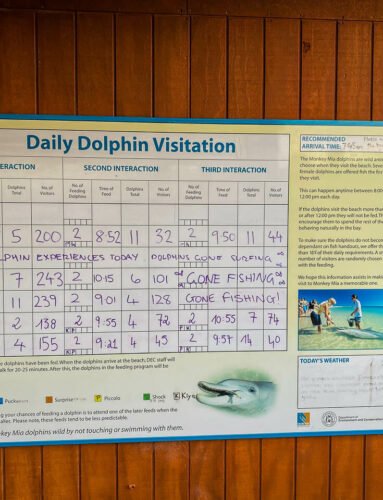 Daily Dolphin Visitation
ERACTION SECOND INTERACTION THIRD INTERACTION
Dolphins Total No. of Visitors No. of Feeding Dolphins Time of Feed Dolphins Total No. of Visitors No. of Feeding Dolphins Time of Feed Dolphins Total No. of Visitors
5 200 2 8 52 11 32 2 9.50 11 44
PHIN EXPERIENCES TODAY DOLPHINS GONE SURFING
7 243 2 1015 6 101 GONE FISHING
11 239 2 9 01 4 128 GONE FISHING!
2 138 2 9:55 4 72 2 10:55 7 74
4 155 2 9:21 4 45 2 9:57 14 40
dolphins have been fed. When the dolphins arrive at the beach, DEC staff will
lk for 20-25 minutes. After this, the dolphins in the feeding program will be
Puck Surprise Piccolo Shock Kiya
ng your chances of feeding a dolphin is to attend one of the later feeds when the
aller. Please note, these feeds tend to be less predictable.
nkey Mia dolphins wild by not touching or swimming with them.
RECOMMENDED
ARRIVAL TIME: 7.45am
The Monkey Mia dolphins are wild anim
choose when they visit the beach.
female dolphins are offered fish the first
they visit.
This can happen anytime between 8:00
12:00 pm each day.
If the dolphins visit the beach more than
or after 12:00 pm they will not be fed. T
encourage them to spend the rest of the
behaving naturally in the bay.
To make sure the dolphins do not become
dependant on fish handouts, we offer th
than 10% of their daily requirements. A s
number of visitors are randomly chosen
with the feeding.
We hope this information assists in mak
visit to Monkey Mia a memorable one.
TODAY'S WEATHER
Department of
Environment and Conservation